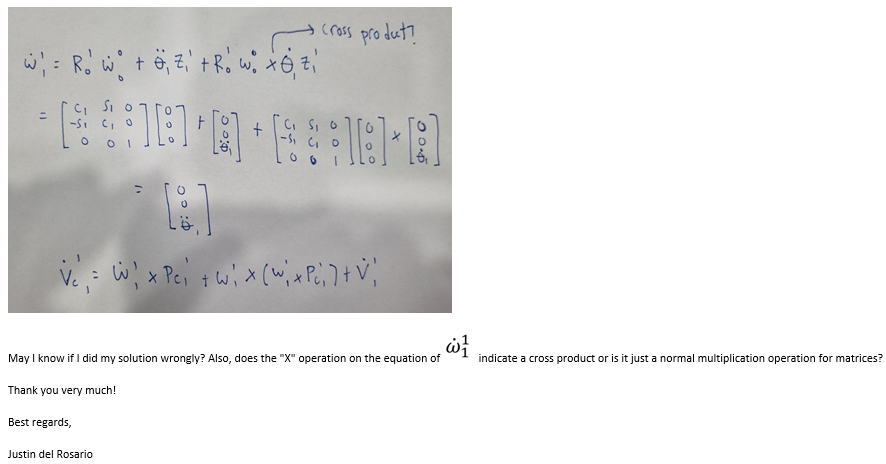 cross product?
ω̇₁¹ = R₀¹ ω̇₀⁰ + θ̈₁ z₁¹ + R₀¹ ω₀⁰ × θ̇₁ z₁¹
= [C₁ S₁ 0; -S₁ C₁ 0; 0 0 1] [0; 0; 0] + [0; 0; θ̈₁] + [C₁ S₁ 0; -S₁ C₁ 0; 0 0 1] [0; 0; 0] × [0; 0; θ̇₁]
= [0; 0; θ̈₁]
V̇c₁¹ = ω̇₁¹ × Pc₁¹ + ω₁¹ × (ω₁¹ × Pc₁¹) + V̇₁¹
May I know if I did my solution wrongly? Also, does the "X" operation on the equation of ω̇₁¹ indicate a cross product or is it just a normal multiplication operation for matrices?
Thank you very much!
Best regards,
Justin del Rosario